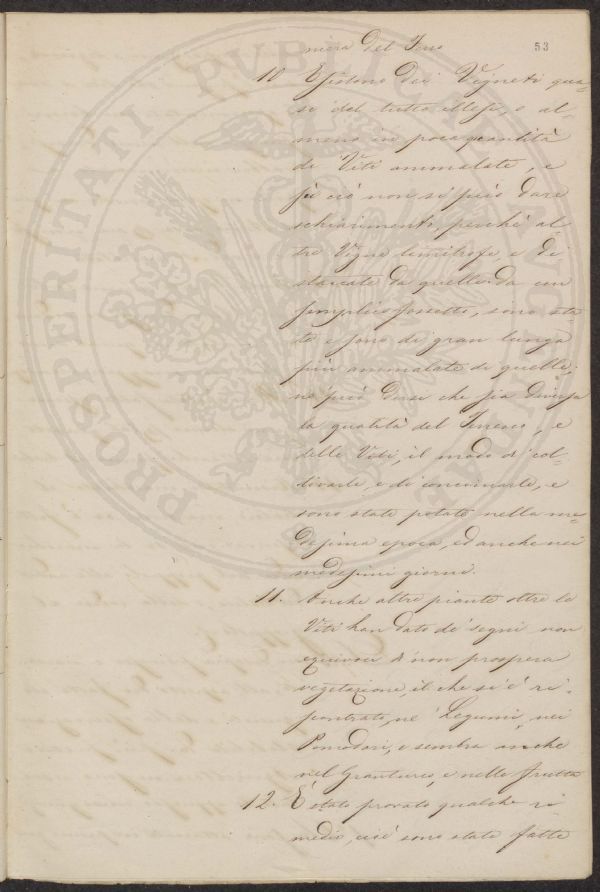 53
niera del Teso
10 Esistono dei Vigneti qua-
si del tutto illesi, o al-
meno in poca quantità
di Viti ammalate, e
di ciò non si può dare
schiarimenti, perchè al
tre Vigne limitrofe, e di
staccate da quelle da un
semplice fossetto, sono sta-
te e sono di gran lunga
più ammalate di quelle;
nè può dirsi che sia diversa
la qualità del Terreno, e
delle Viti, il modo di col-
tivarle, e di concimarle, e
sono state potate nella me-
desima epoca, ed anche nei
medesimi giorni.
11. Anche altre piante oltre le
Viti han dato de' segni non
equivoci di non prospera
vegetazione, il che si è ri-
scontrato, ne' Legumi, nei
Pomodori, e sembra anche
nel Granturco, e nelle frutta
12. È stato provato qualche ri
medio, cioè sono state fatte
PROSPERITATI PUBLICAE AUGENDAE